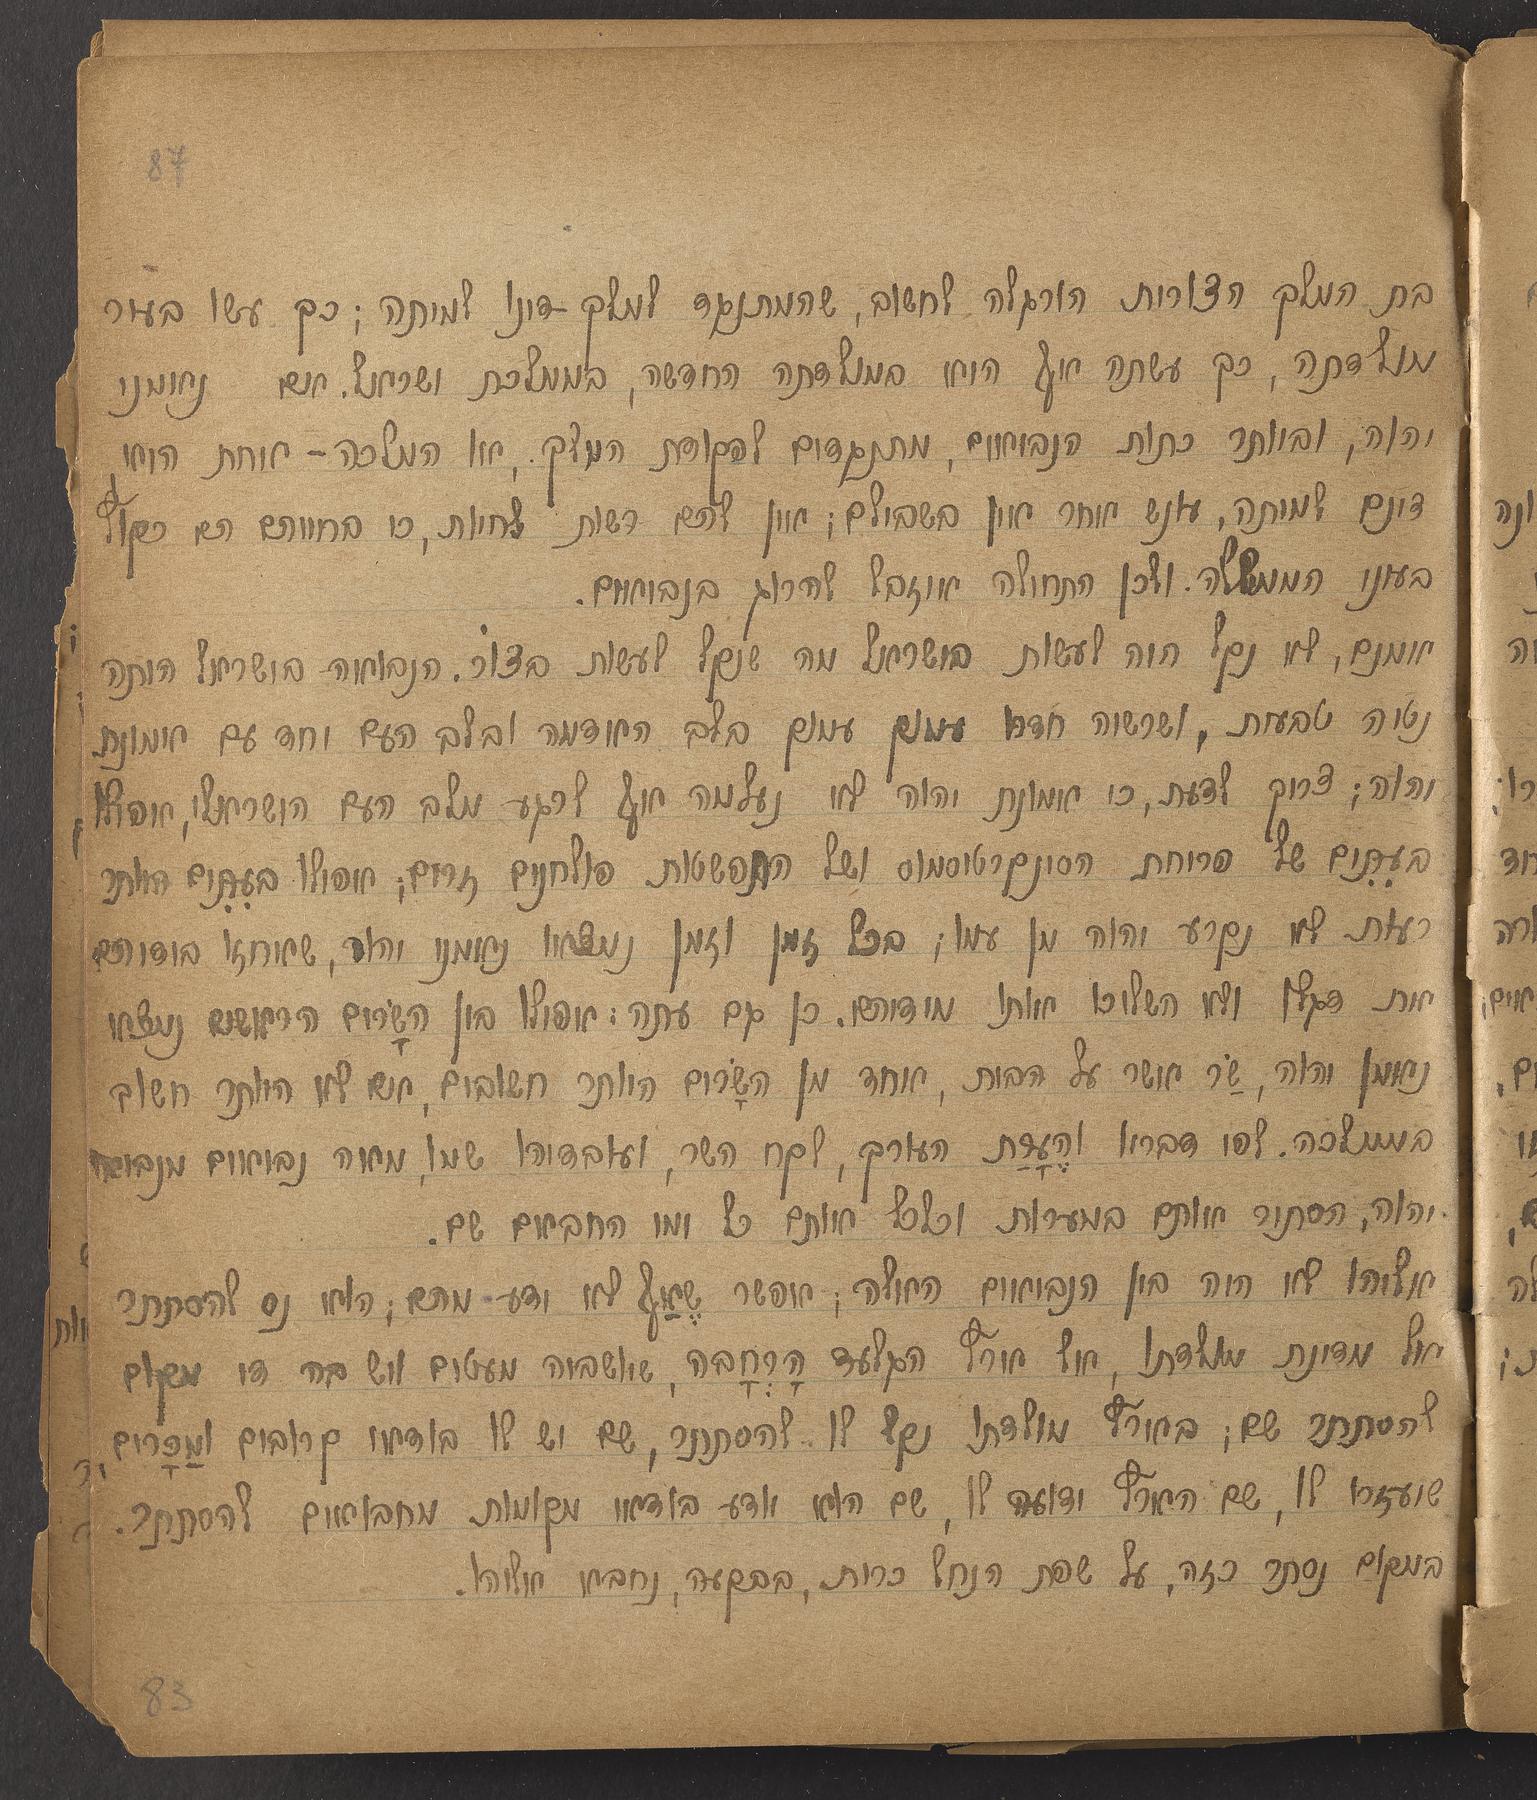 87
בת המלך הצורית הורגלה לחשוב, שהמתנגד למלך דינו למיתה; כך עשו בעיר
מולדתה, כך עשתה אף היא במולדתה החדשה, בממלכת ישראל. אם נאמני
יהוה, וביותר כתות הנביאים, מתנגדים לפקודת המלך, או המלכה – אחת היא,
דינם למיתה, עונש אחר אין בשבילם; אין להם רשות לחיות, כי בחייהם הם כקוץ
בעיני הממשלה. ולכן התחילה איזבל להרוג בנביאים.
אמנם, לא נקל היה לעשות בישראל מה שנקל לעשות בצור. הנבואה בישראל היתה
נטיה טבעית, ושרשיה חדרו עמוק עמוק בלב האדמה ובלב העם יחד עם אמונת
יהוה; צריך לדעת, כי אמונת יהוה לא נעלמה אף לרגע מלב העם הישראלי, אפילו
בעתים של פריחת הסינקרטיסמוס ושל התפשטות פולחנים זרים; אפילו בעתים היותר
רעות לא נקרע יהוה מן עמו; בכל זמן וזמן נמצאו נאמני יהוה, שאחזו בידיהם
את דגלו ולא השליכו אותו מידיהם. כן גם עתה: אפילו בין השרים הראשים נמצא
נאמן יהוה, שר אשר על הבית, אחד מן השרים היותר חשובים, אם לא היותר חשוב
בממלכה. לפי דברי והעדת העורך, לקח השר, ועובדיהו שמו, מאה נביאים מנביאי
יהוה, הסתיר אותם במערות וכלכל אותם כל ימי החבאם שם.
אליהו לא היה בין הנביאים האלה; אפשר שאף לא ידע מהם; הוא נס להסתתר
אל מדינת מולדתו, אל ארץ הגלעד הרחבה, שיושביה מעטים ויש בה די מקום
להסתתר שם; בארץ מולדתו נקל לו להסתתר, שם יש לו בודאי קרובים ומכרים,
שיעזרו לו, שם הארץ ידועה לו, שם הוא יודע בודאי מקומות מחבואים להסתתר.
במקום נסתר כזה, על שפת הנחל כרית, בבקעה, נחבא אליהו.
83